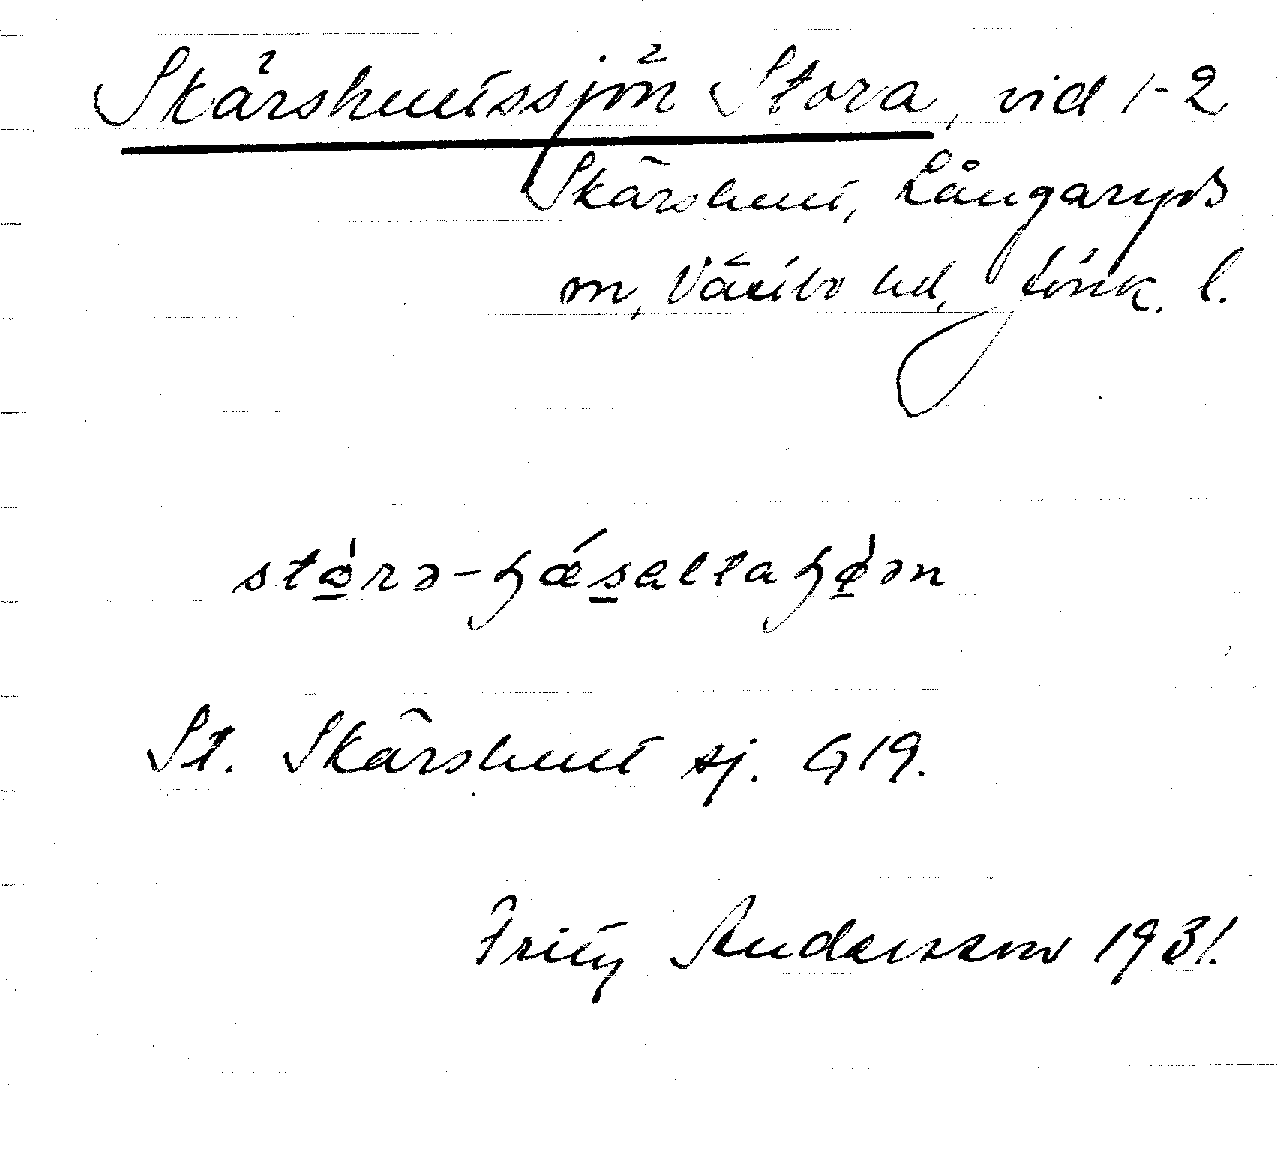 Skärshultssjön Stora, vid 1-2
Skärshult, Långaryds
sn, Västbo hd, Jönk. l.
St. Skärshult sj. G19.
Fritz Andersson 1931.